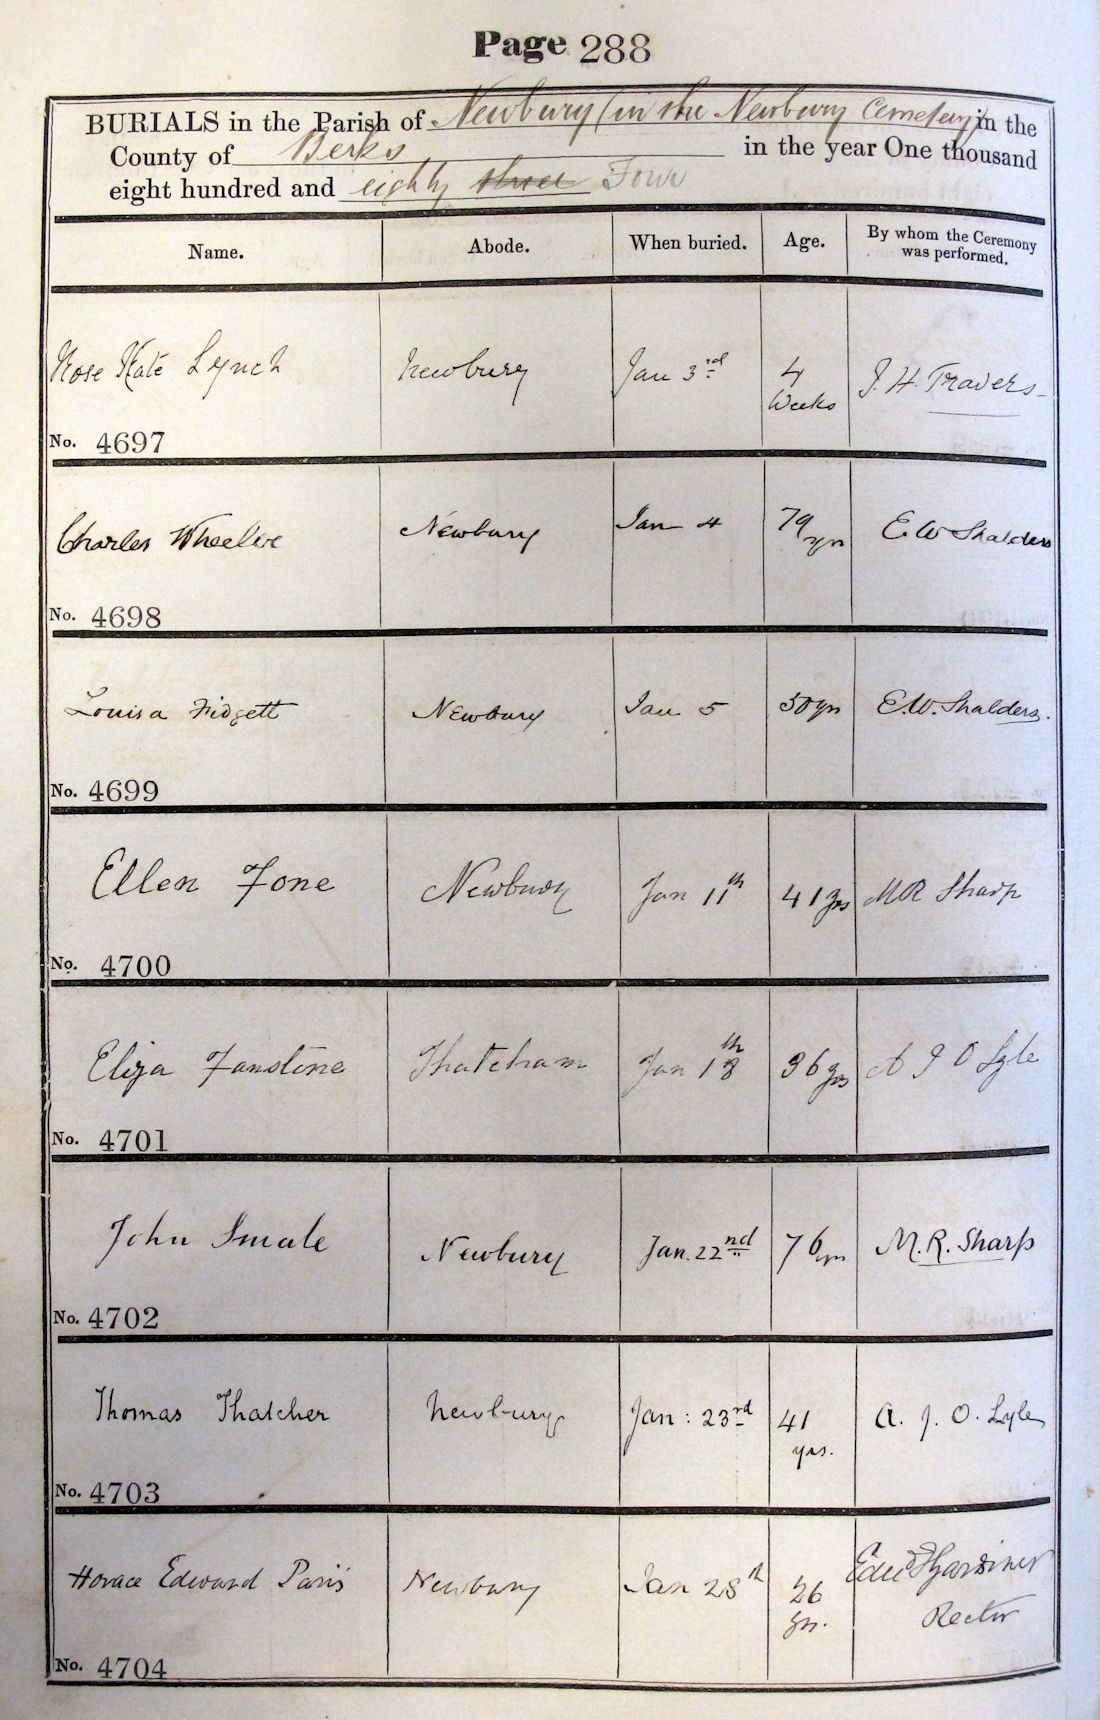 Page 288
BURIALS in the Parish of Newbury (in the Newbury Cemetery) in the
County of Berks in the year One thousand
eight hundred and eighty three Four
Name. Abode. When buried. Age. By whom the Ceremony
was performed.
Rose Kate Lynch Newbury Jan 3rd 4
Weeks J. H. Travers
No. 4697
Charles Newbury Jan 4 79
yrs E. W. Shalders
No. 4698
Louisa Fidgett Newbury Jan 5 50 yrs E. W. Shalders.
No. 4699
Ellen Fone Newbury Jan 11th 41 yrs M R Sharp
No. 4700
Eliza Fanstone Thatcham Jan 18th 36 yrs A J O Lyle
No. 4701
John Smale Newbury Jan. 22nd 76 yrs M. R. Sharp
No. 4702
Thomas Thatcher Newbury Jan: 23rd 41
yrs. A. J. O. Lyle
No. 4703
Horace Edward Paris Newbury Jan 28th 26
yrs. Gardiner
Rector
No. 4704